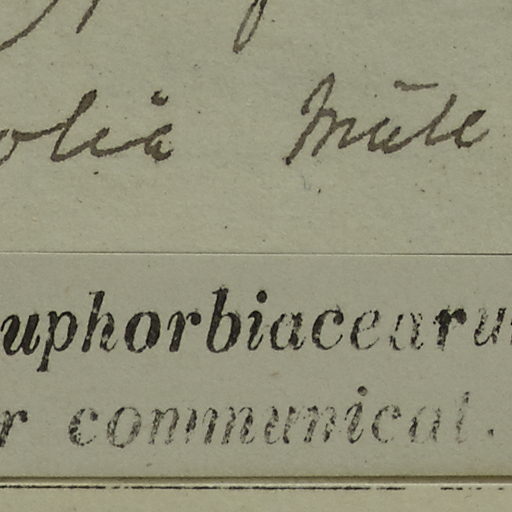 olia Müll
uphorbiacearu
r communicat.